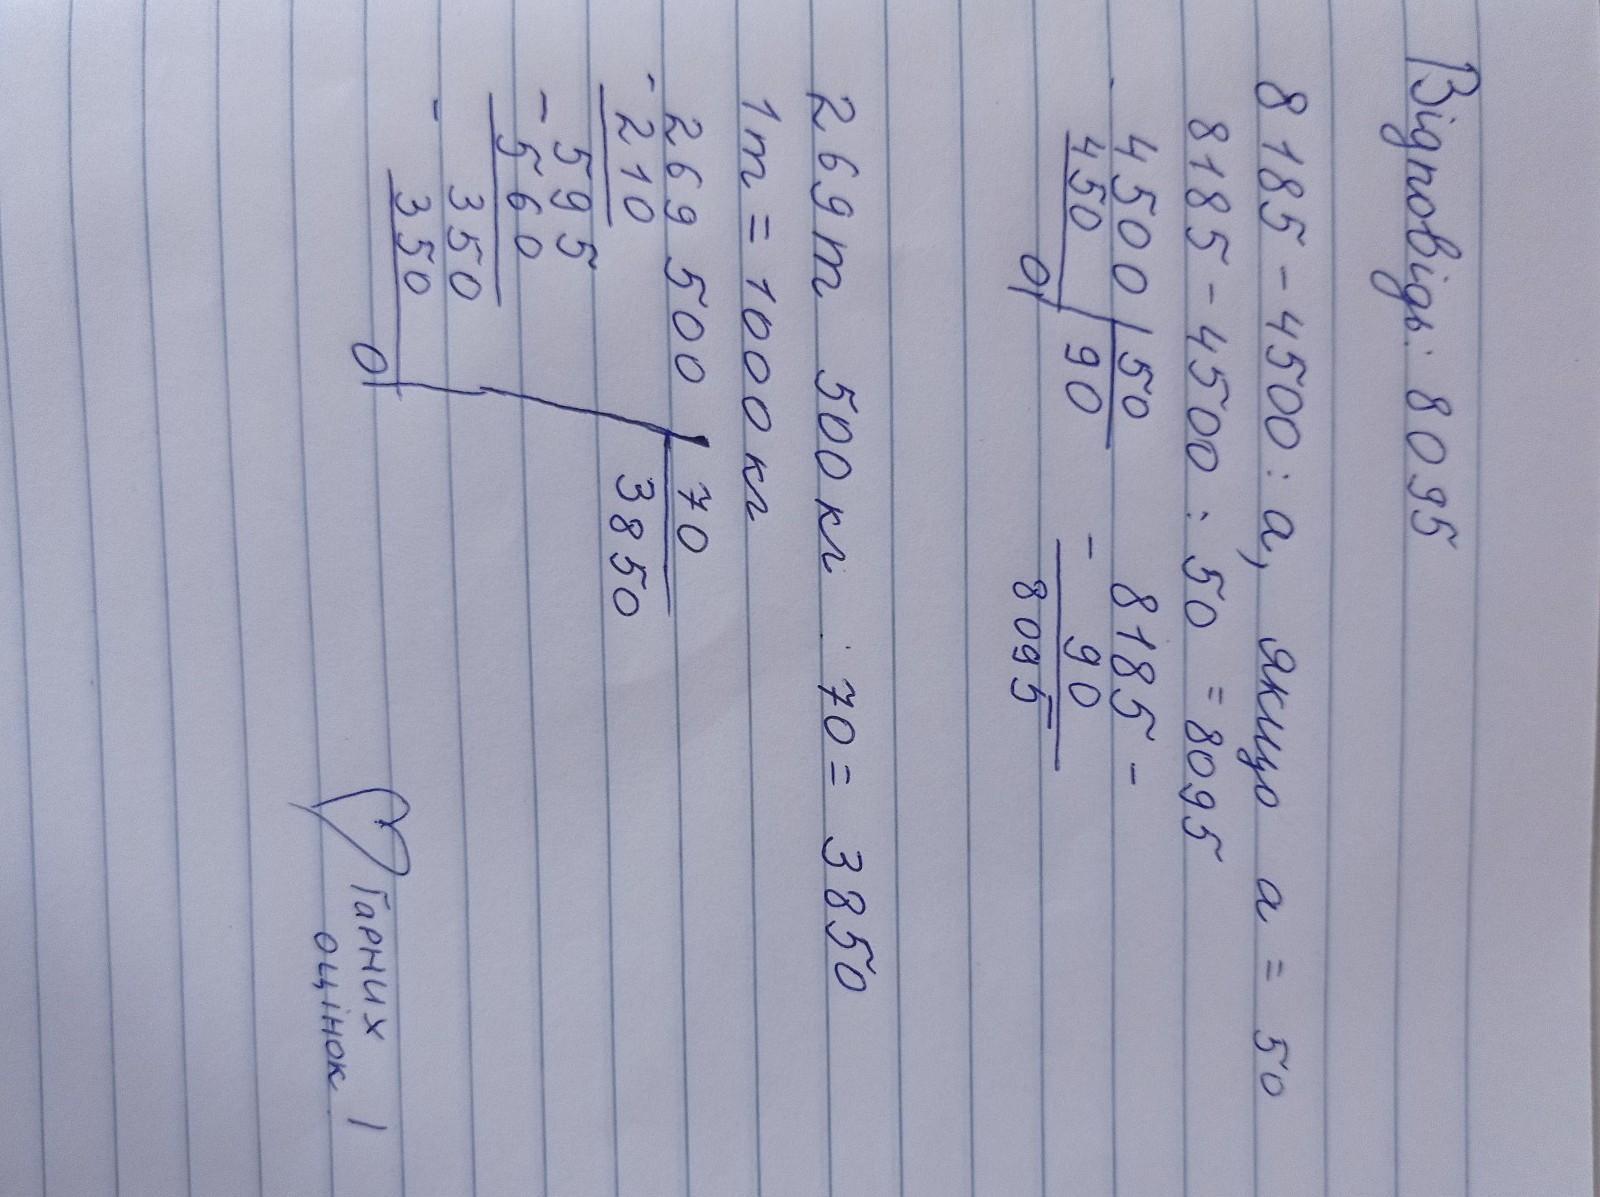 Відповідь: 8095
8185 - 4500 : а, якщо а = 50
8185 - 4500 : 50 = 8095
- 4500 | 50     8185 -
450     90     - 90
0     8095
269 т 500 кг : 70 = 3850
1 т = 1000 кг
269 500 | 70
- 210     3850
595
- 560
350
- 350
0
Гарних
оцінок !